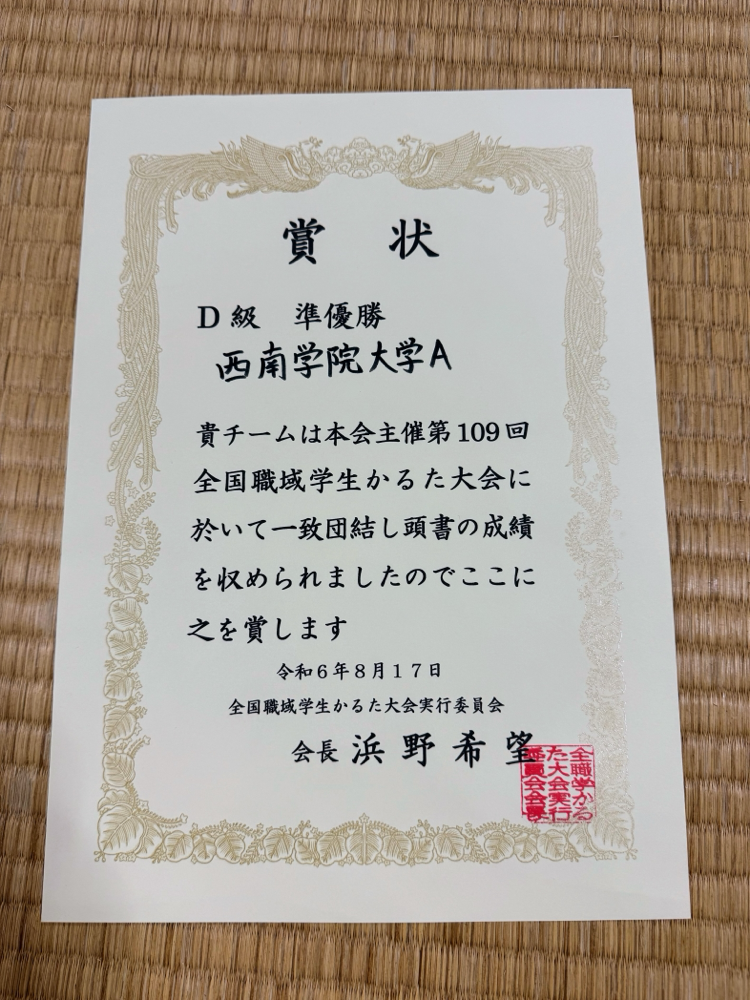 賞 状
D級 準優勝
西南学院大学A
貴チームは本会主催第109回
全国職域学生かるた大会に
於いて一致団結し頭書の成績
を収められましたのでここに
之を賞します
令和6年8月17日
全国職域学生かるた大会実行委員会
会長 浜野希望
全職学かる
た大会実行
委員会会長